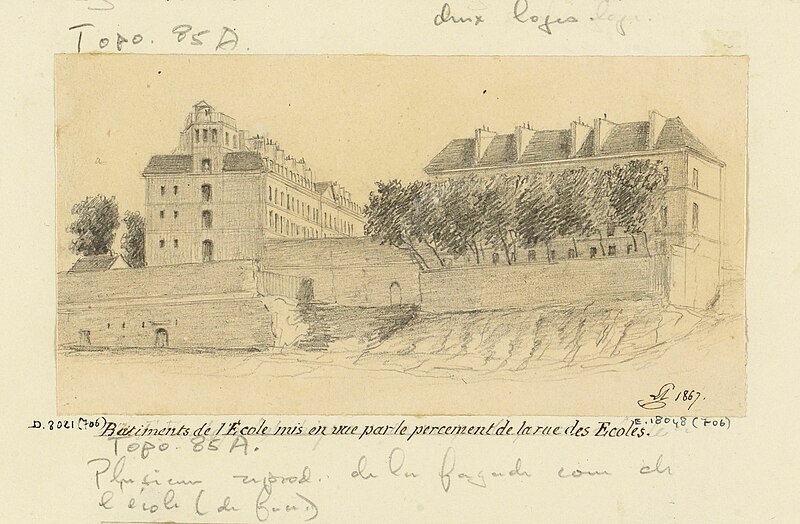 deux loges loge.
Topo. 85 A.
1867.
D. 8021 (706) Batiments de l'Ecole mis en vue par le percement de la rue des Ecoles. E. 18048 (706)
Topo. 85 A.
Plusieurs reprod. de la façade cour de
l'école (de face)